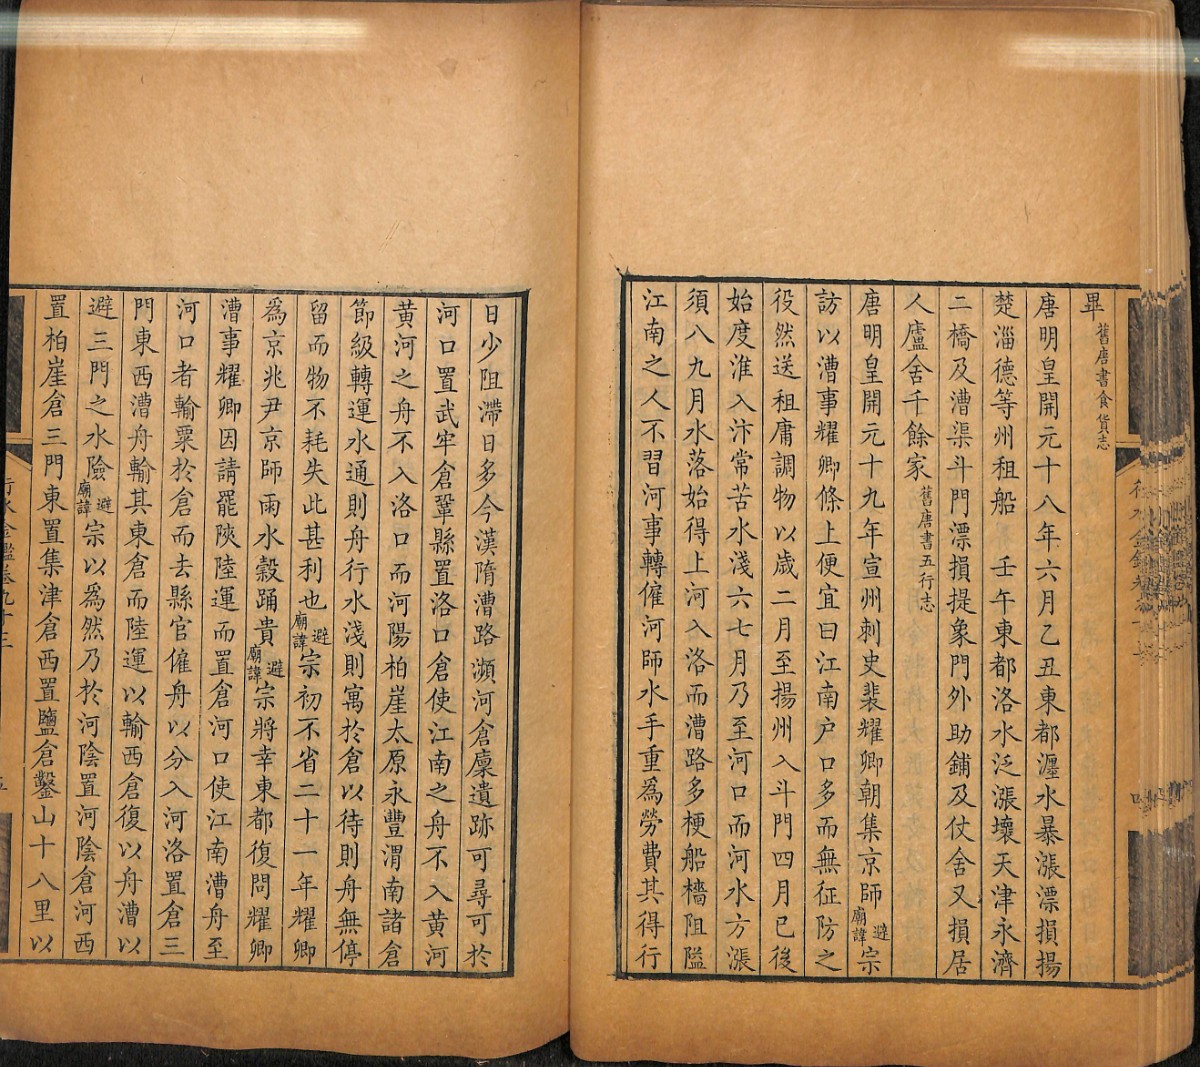 畢舊唐書食貨志
唐明皇開元十八年六月乙丑東都瀍水暴漲漂損揚
楚淄德等州租船　壬午東都洛水泛漲壞天津永濟
二橋及漕渠斗門漂損提象門外助鋪及仗舍又損居
人廬舍千餘家舊唐書五行志
唐明皇開元十九年宣州刺史裴耀卿朝集京師避廟諱宗
訪以漕事耀卿條上便宜曰江南戶口多而無征防之
役然送租庸調物以歲二月至揚州入斗門四月已後
始度淮入汴常苦水淺六七月乃至河口而河水方漲
須八九月水落始得上河入洛而漕路多梗船檣阻隘
江南之人不習河事轉僱河師水手重為勞費其得行
日少阻滯日多今漢隋漕路瀕河倉廩遺跡可尋可於
河口置武牢倉鞏縣置洛口倉使江南之舟不入黃河
黃河之舟不入洛口而河陽柏崖太原永豐渭南諸倉
節級轉運水通則舟行水淺則寓於倉以待則舟無停
留而物不耗失此甚利也避廟諱宗初不省二十一年耀卿
為京兆尹京師雨水穀踊貴避廟諱宗將幸東都復問耀卿
漕事耀卿因請罷陝陸運而置倉河口使江南漕舟至
河口者輸粟於倉而去縣官僱舟以分入河洛置倉三
門東西漕舟輸其東倉而陸運以輸西倉復以舟漕以
避三門之水險避廟諱宗以為然乃於河陰置河陰倉河西
置柏崖倉三門東置集津倉西置鹽倉鑿山十八里以
行水金鑑卷九十三